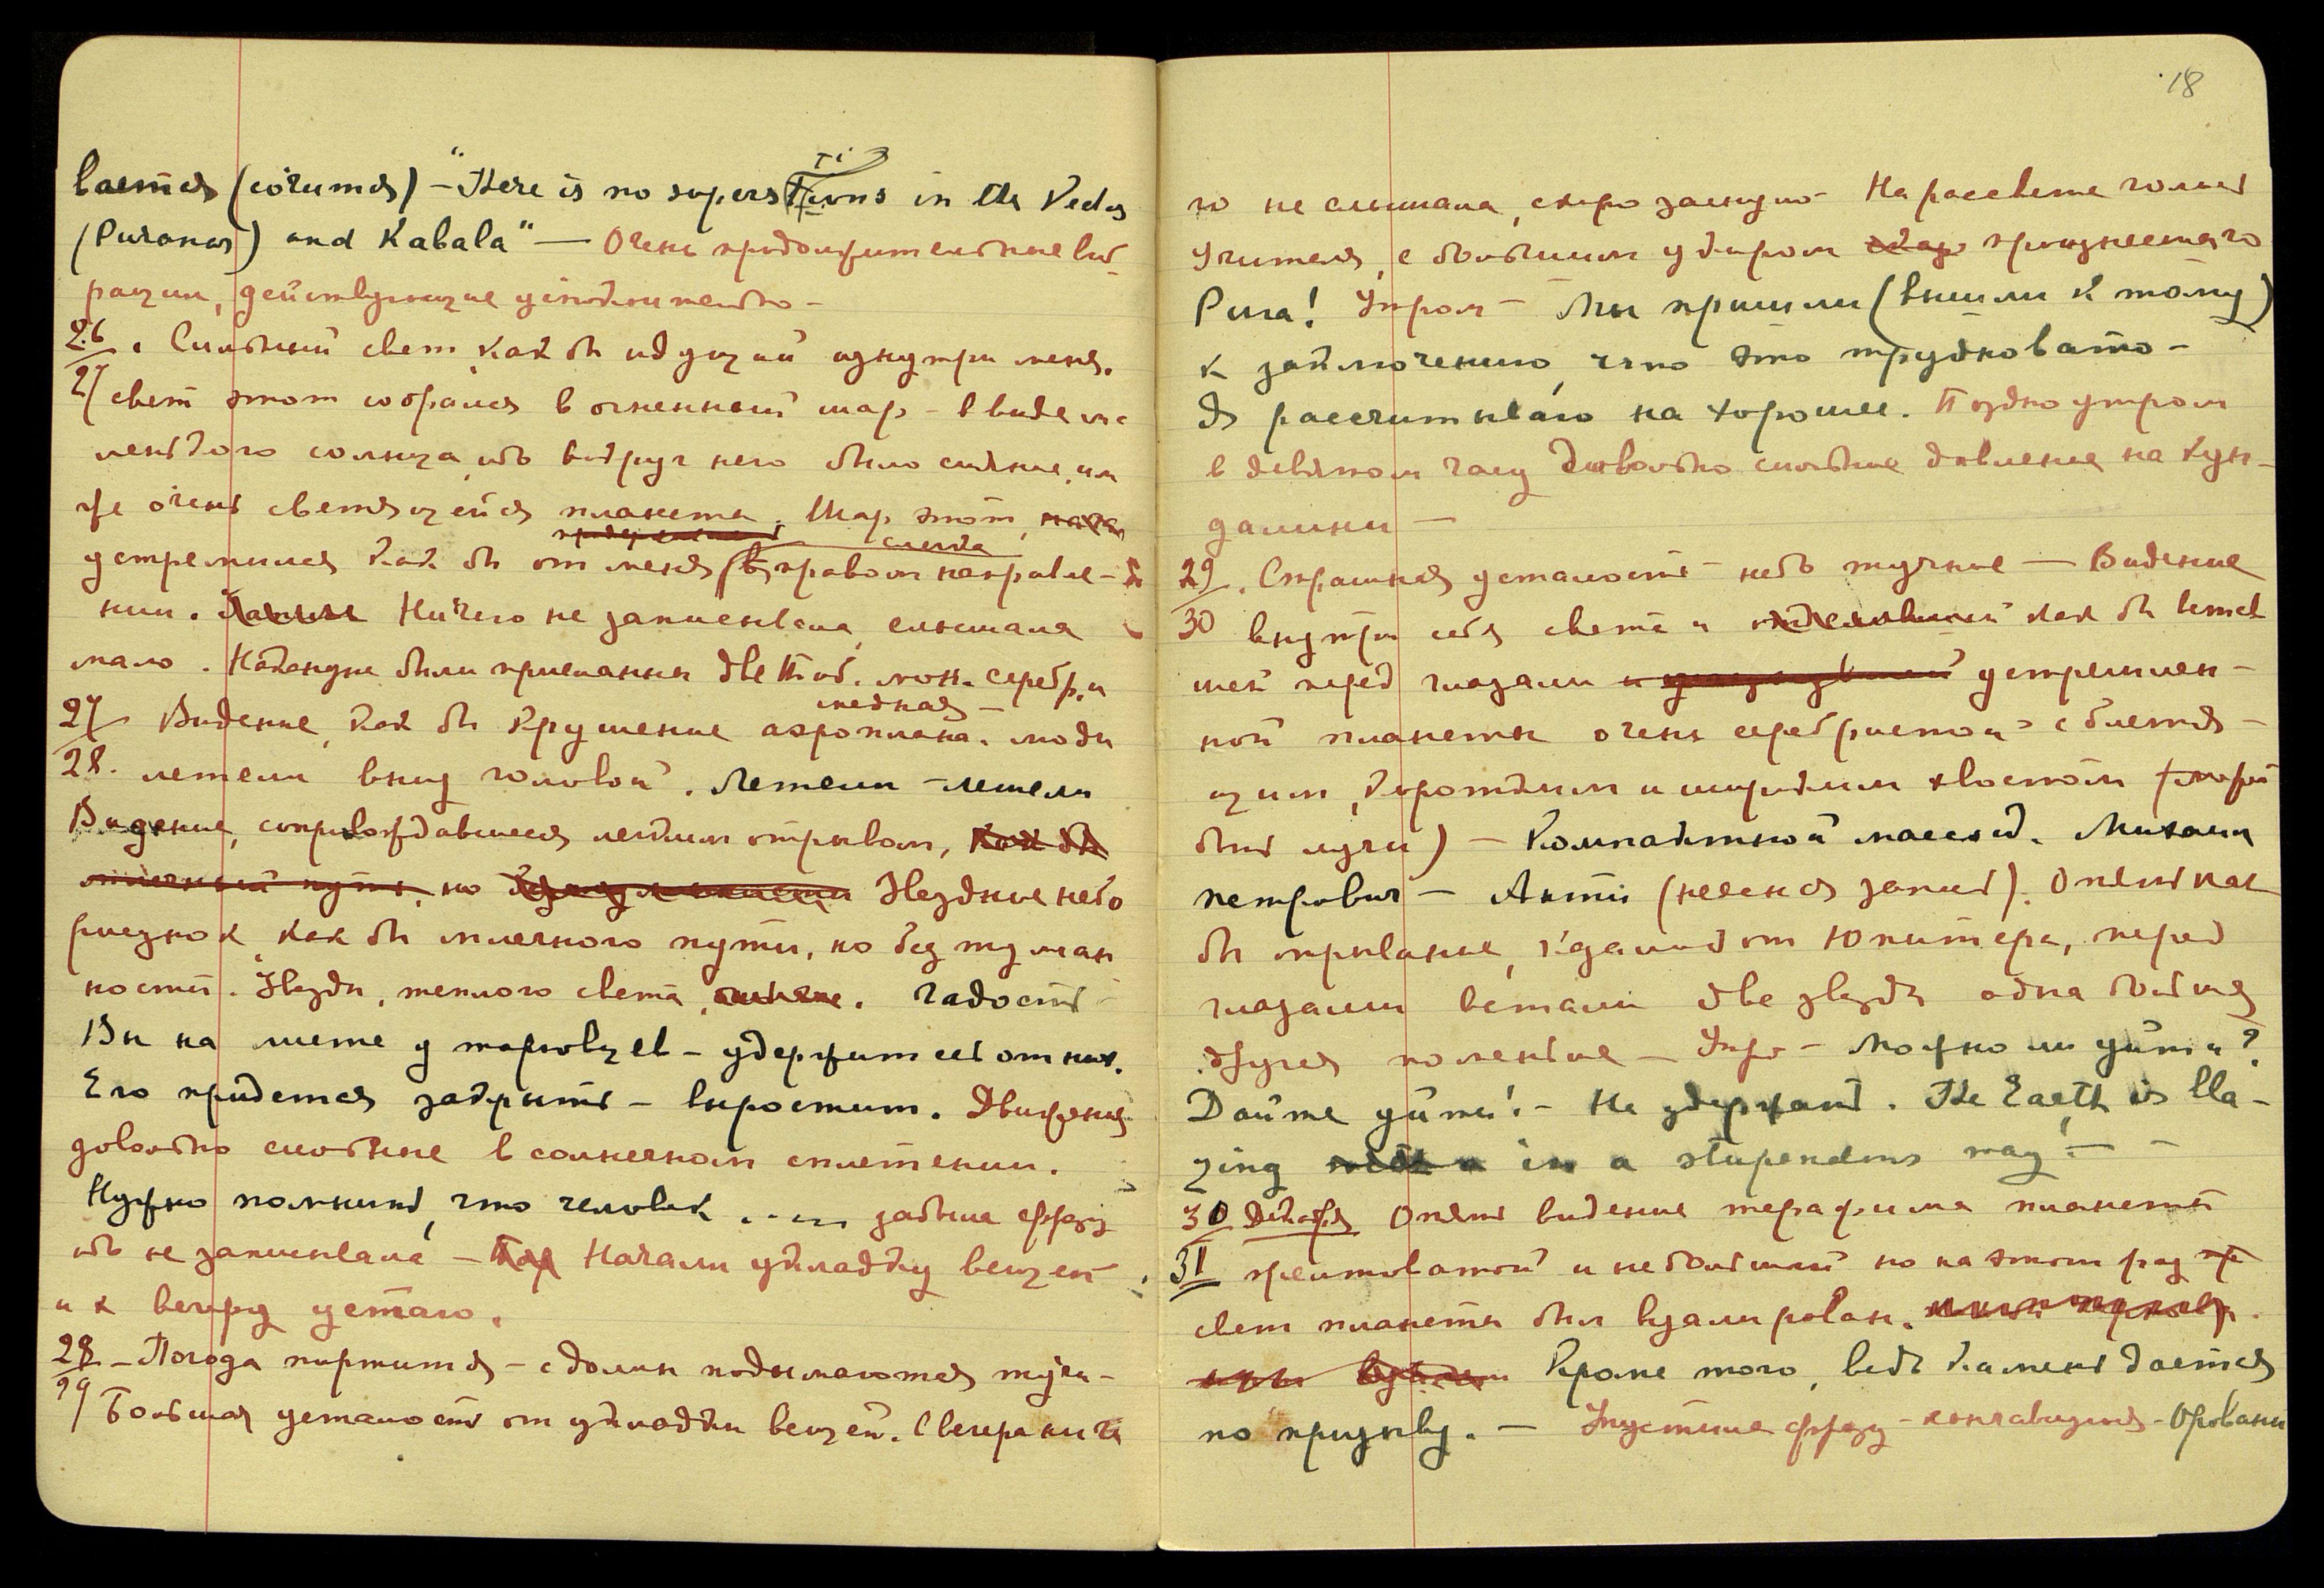 вается (сочится) – "Here is no superstitions in the Vedas
(Puranas) and Kabala" — Очень продолжительные виб-
рации, действующие усыпительно –
26. Сильный свет, как бы идущий изнутри меня.
27 свет этот собрался в огненный шар – в виде ма
ленького солнца, ибо вокруг него было сияние, или
же очень светящейся планеты. Шар этот,
слегка
устремился как бы от меня (в правом направле-
нии. Ничего не записывала, слышала
мало. Накануне были присланы две Тиб. мон. серебр. и
медная –
27 Видение, как бы крушение аэроплана. люди
28. летели вниз головой. Летели – летели
Видение, сопровождавшееся легким отрывом, как бы
млечный путь, но Звездное небо
рисунок, как бы млечного пути, но без туман
ности. Звезды, теплого света. Радость –
Вы на мете у торговцев – удержитесь от них.
Его придется закрыть – выростит. Движения
довольно сильные в солнечном сплетении.
Нужно помнить, что человек ..... забыла фразу
ибо не записывала – Начали укладку вещей
и к вечеру устаю.
28 – Погода портится – с долин подымаются тучи –
29 Большая усталость от укладки вещей. С вечера ниче
18
го не слышала, скоро заснула – На рассвете голос
Учителя, с большим укором произнесшего
Рига! Утром – Мы пришли (вышли к тому)
к заключению, что это трудновато –
Я рассчитываю на хорошее. Поздно утром
в девятом часу довольно сильные давления на Кун-
далини —
29. Страшная усталость – небо тучное — Видение
30 внутри себя света и как бы встав
шей перед глазами устремлен-
ной планеты очень серебристой с блестя-
щим, коротким и широким хвостом (может
быть лучи) – Компактной массой. Михаил
петрович – Акти (неясная запись). Опять как
бы отрывание, и далеко от Юпитера, перед
глазами встали две звезды одна больше
другая поменьше – Утро – Можно ли уйти?
Дайте уйти! – Не удержат. The Earth is bla-
zing in a stupendous way! —
30 Декабря Опять видение терафима планеты
31 красноватой и небольшой но на этот раз
свет планеты был вуалирован.
Кроме того, ведь камень дается
по призыву. – Упустила фразу –